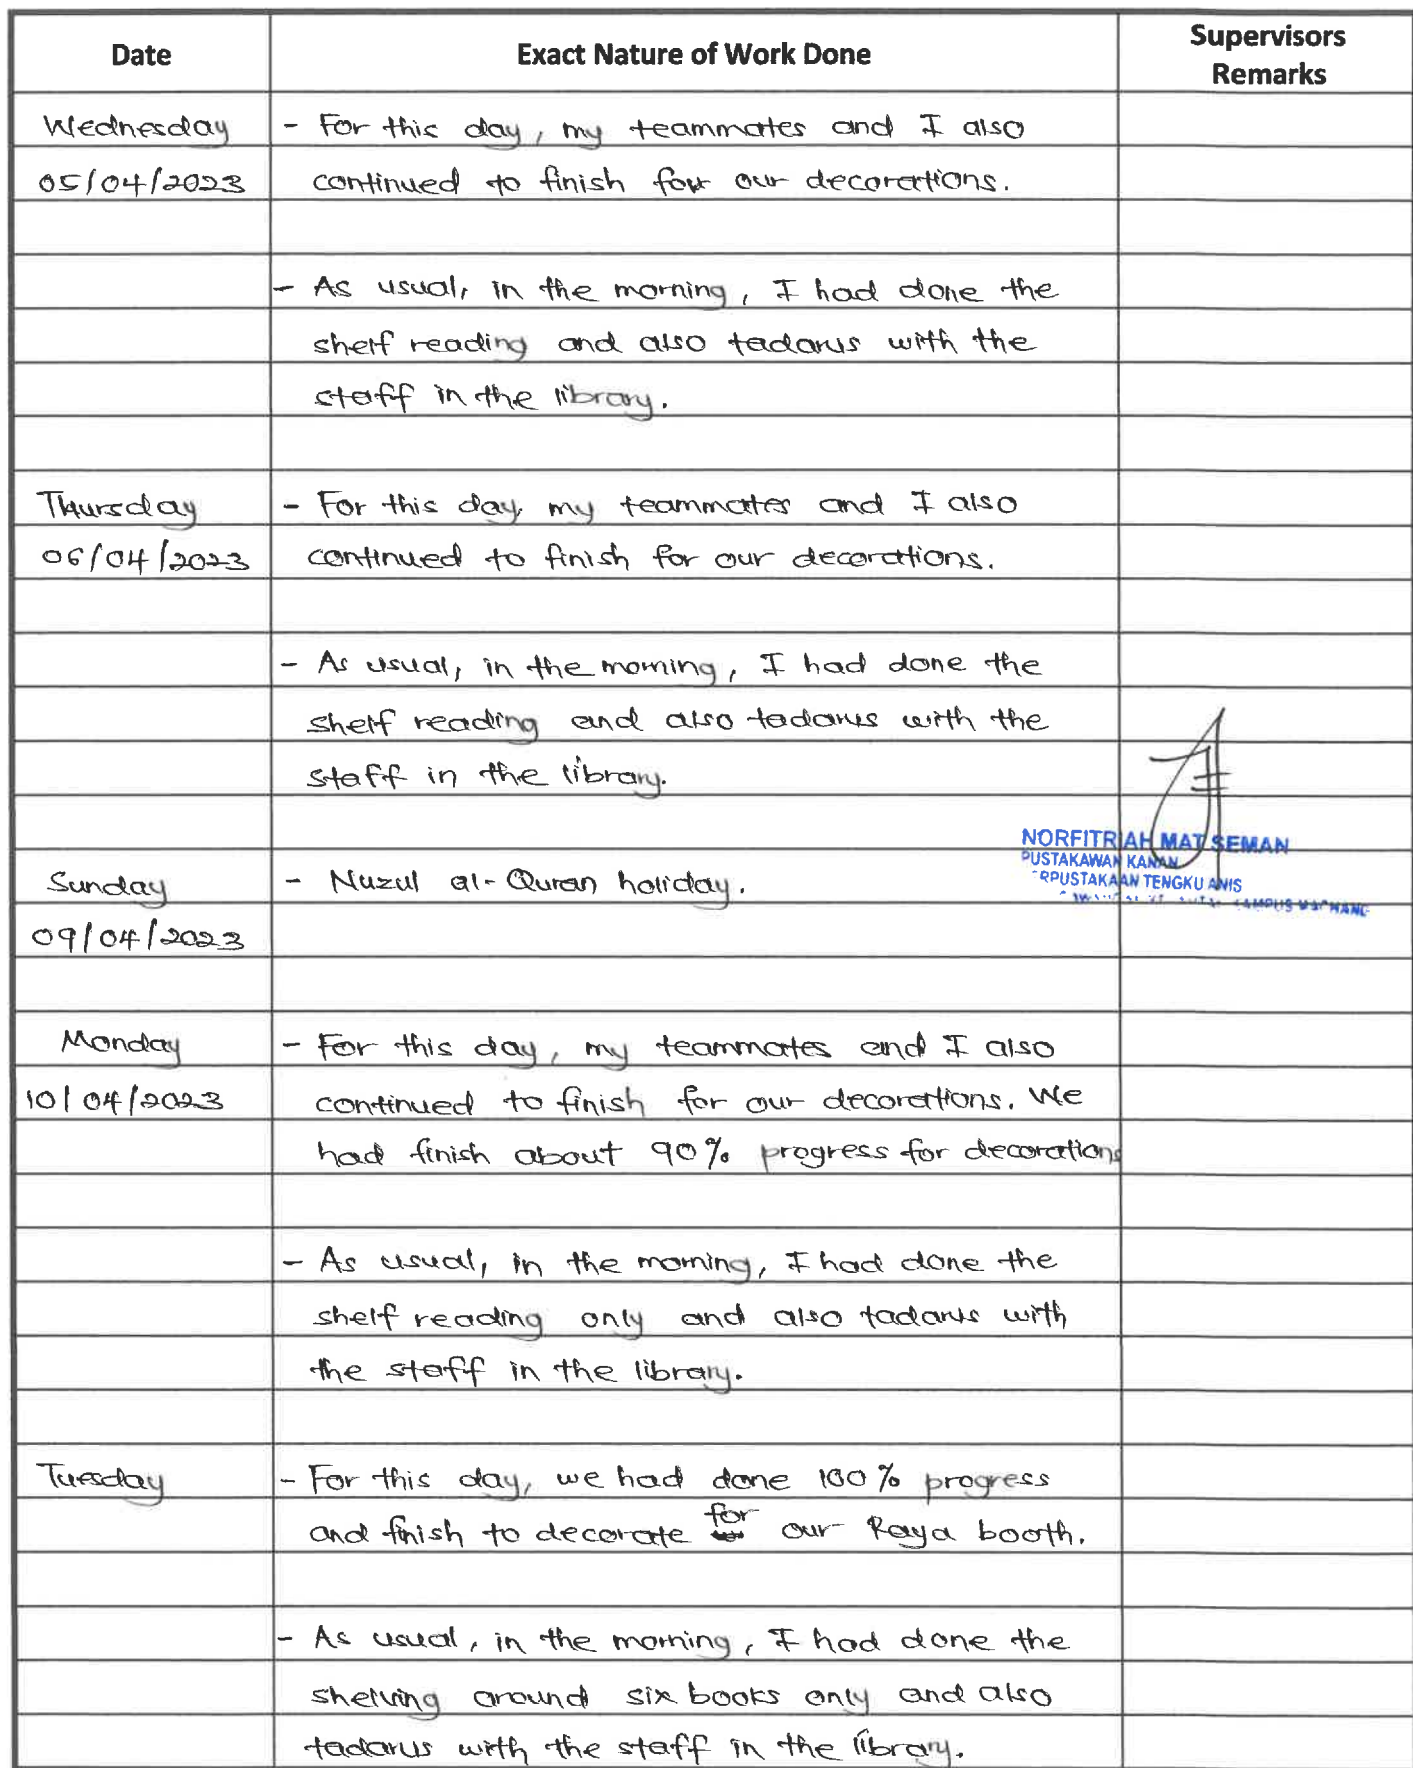 Date Exact Nature of Work Done Supervisors Remarks
Wednesday - For this day, my teammates and I also
05/04/2023 continued to finish for our decorations.
- As usual, in the morning, I had done the
shelf reading and also tadarus with the
staff in the library.
Thursday - For this day, my teammates and I also
06/04/2023 continued to finish for our decorations.
- As usual, in the morning, I had done the
shelf reading and also tadarus with the
staff in the library.
NORFITRIAH MAT SEMAN
PUSTAKAWAN KANAN
RPUSTAKAAN TENGKU ANIS
KAMPUS MACHANG
Sunday - Nuzul al-Quran holiday.
09/04/2023
Monday - For this day, my teammates and I also
10/04/2023 continued to finish for our decorations. We
had finish about 90% progress for decorations
- As usual, in the morning, I had done the
shelf reading only and also tadarus with
the staff in the library.
Tuesday - For this day, we had done 100% progress
and finish to decorate for our Raya booth.
- As usual, in the morning, I had done the
shelving around six books only and also
tadarus with the staff in the library.